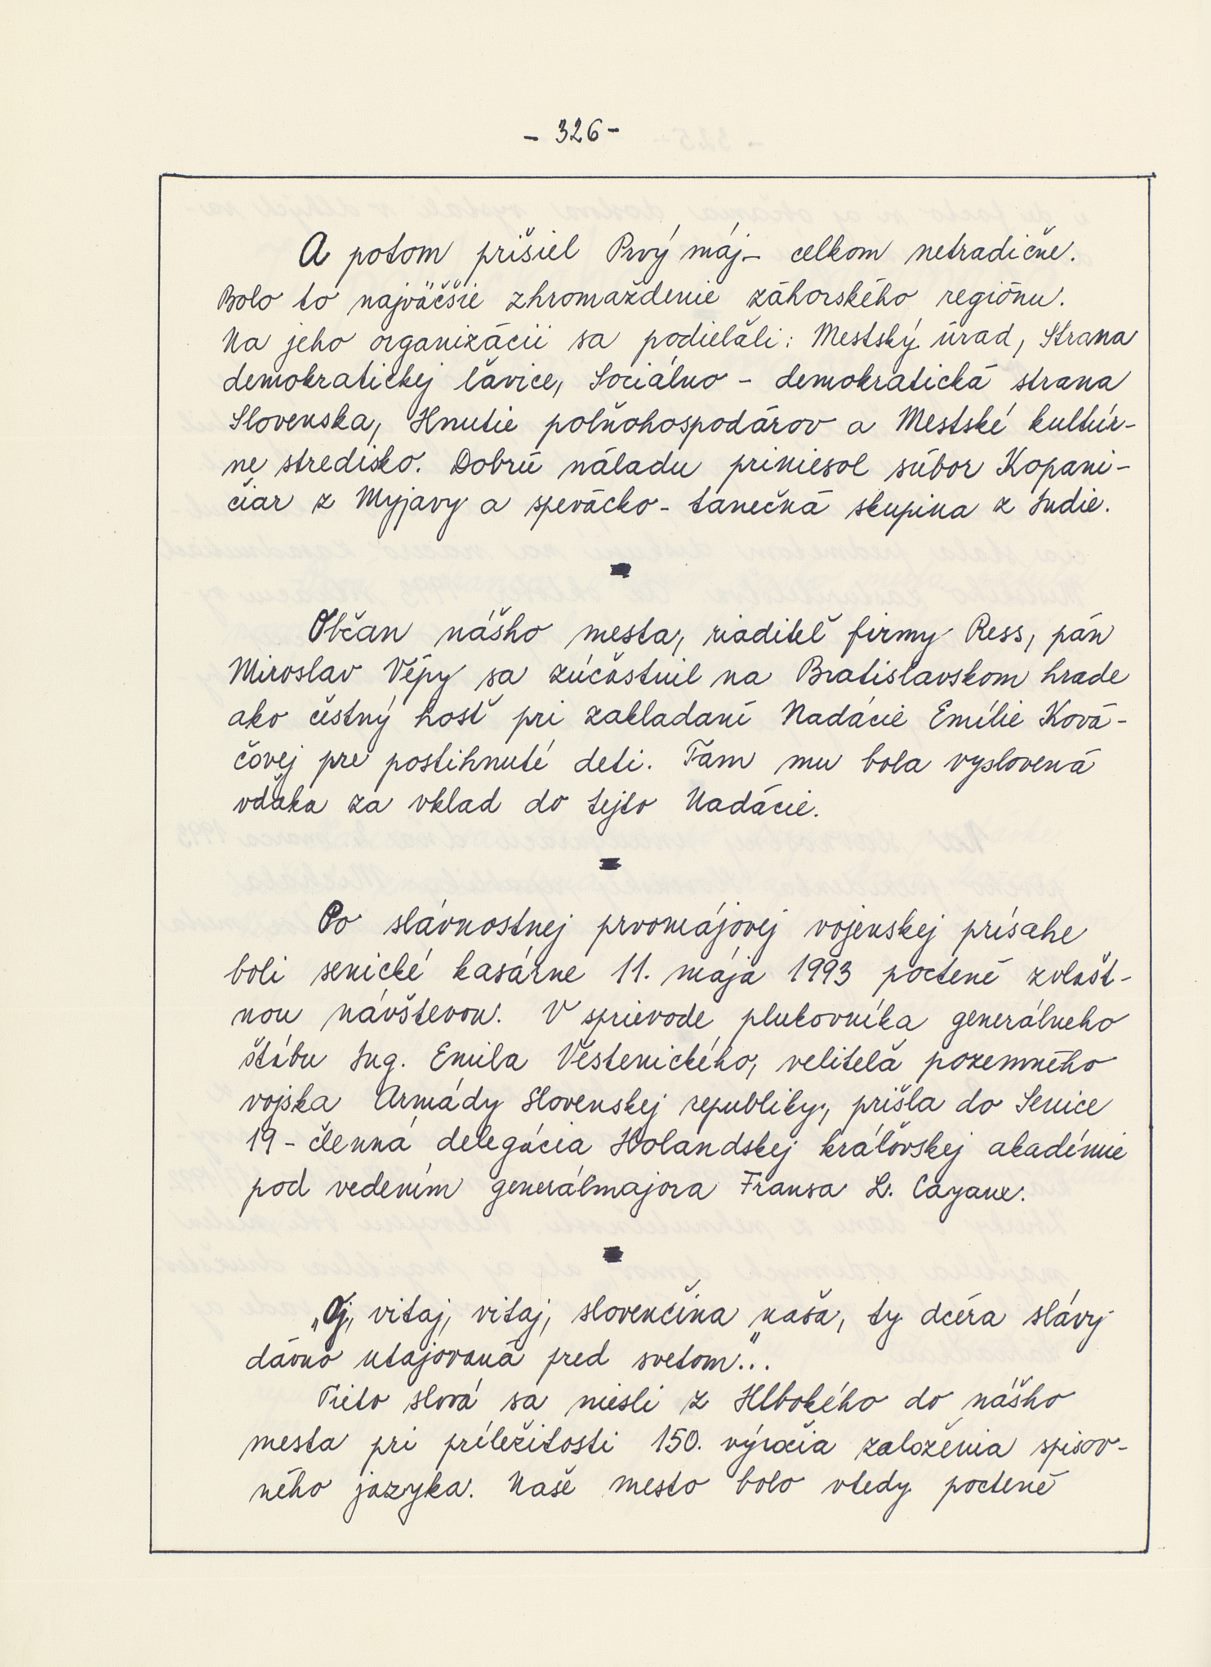 - 326 -
A potom prišiel Prvý máj - celkom netradične.
Bolo to najväčšie zhromaždenie záhorského regiónu.
Na jeho organizácii sa podieľali: Mestský úrad, Strana
demokratickej ľavice, Sociálno - demokratická strana
Slovenska, Hnutie poľnohospodárov a Mestské kultúr-
ne stredisko. Dobrú náladu priniesol súbor Kopani-
čiar z Myjavy a spevácko - tanečná skupina z Indie.
Občan nášho mesta, riaditeľ firmy Ress, pán
Miroslav Vépy sa zúčastnil na Bratislavskom hrade
ako čestný hosť pri zakladaní Nadácie Emílie Ková-
čovej pre postihnuté deti. Tam mu bola vyslovená
vďaka za vklad do tejto Nadácie.
Po slávnostnej prvomájovej vojenskej prísahe
boli senické kasárne 11. mája 1993 poctené zvlášt-
nou návštevou. V sprievode plukovníka generálneho
štábu Ing. Emila Vestenického, veliteľa pozemného
vojska Armády Slovenskej republiky, prišla do Senice
19 - členná delegácia Holandskej kráľovskej akadémie
pod vedením generálmajora Fransa L.
„Oj, vitaj, vitaj, slovenčina naša, ty dcéra slávy
dávno utajovaná pred svetom"...
Tieto slová sa niesli z Hlbokého do nášho
mesta pri príležitosti 150. výročia založenia spisov-
ného jazyka. Naše mesto bolo vtedy poctené